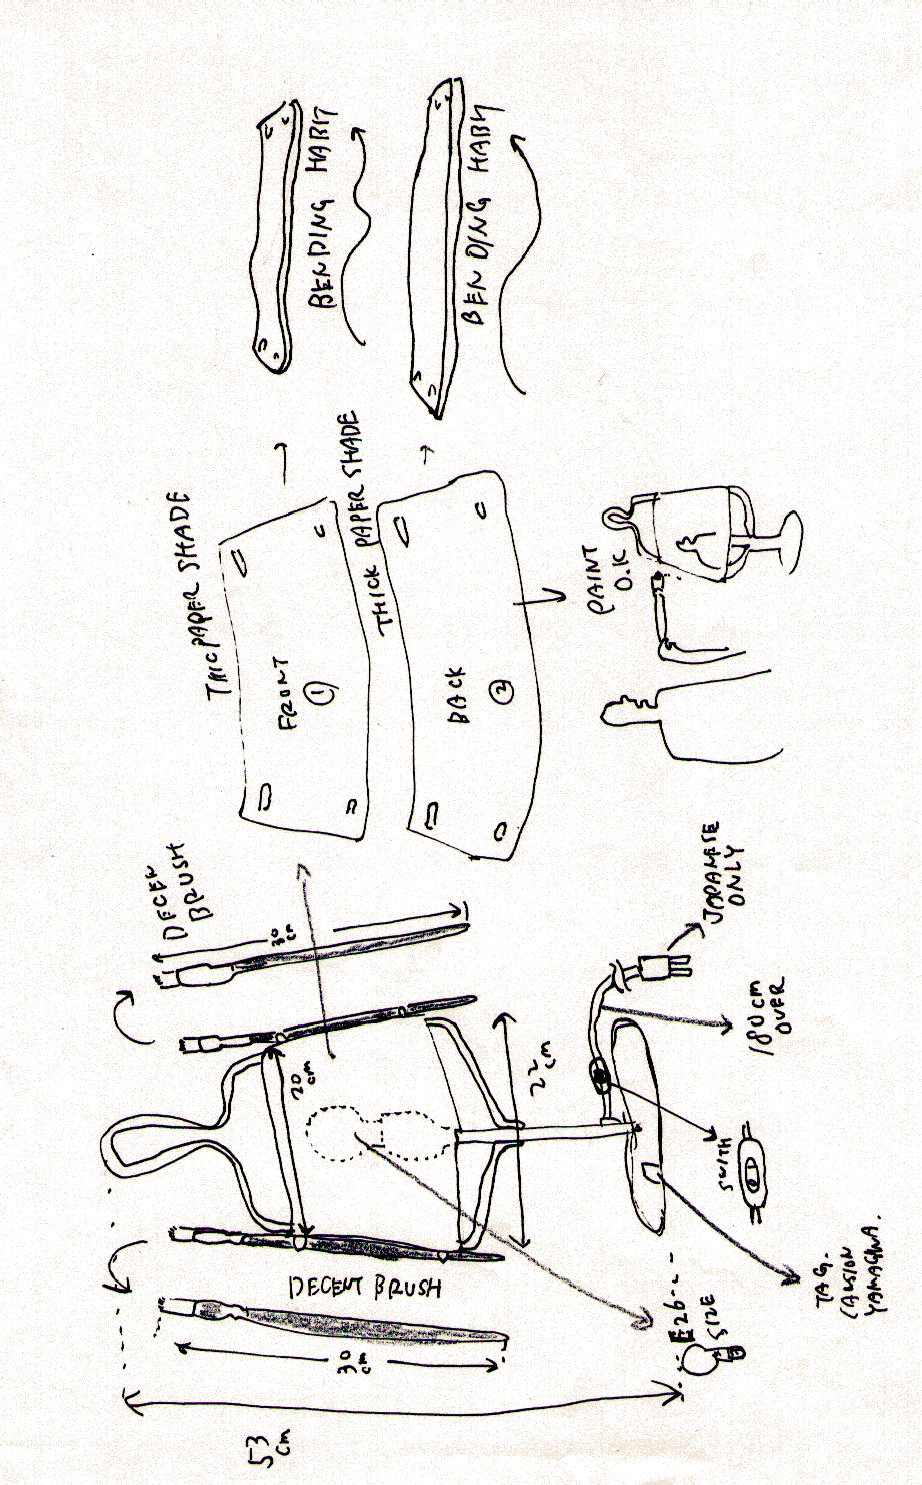 53
cm
30
cm
DECENT BRUSH
E26
SIZE
TAG.
YAMAGIWA.
20
cm
22
cm
SWITH
180cm
OVER
JAPANESE
ONLY
DECEN
BRUSH
30
cm
THIC PAPER SHADE
FRONT
1
THICK PAPER SHADE
BACK
2
PAINT
O.K
BENDING HABIT
BENDING HABIT